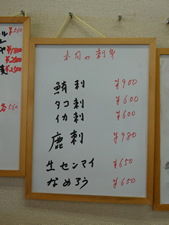 本日の刺身
鮪刺 ¥900
タコ刺 ¥600
イカ刺 ¥600
唐刺 ¥980
生センマイ ¥650
なめろう ¥650